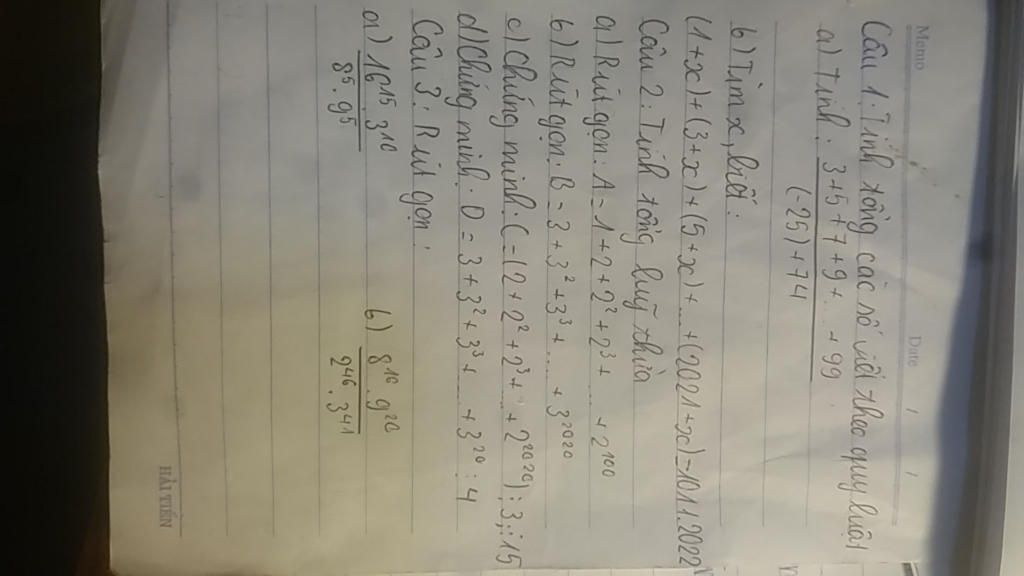 Memo
Date / /
Câu 1: Tính tổng các số viết theo quy luật
a) Tính: 3+5+7+9+...+99
(-25)+74
b) Tìm x, biết:
(1+x)+(3+x)+(5+x)+...+(2021+x)=1011.2022
Câu 2: Tính tổng luỹ thừa
a) Rút gọn: A=1+2+2²+2³+...+2¹⁰⁰
b) Rút gọn: B=3+3²+3³+...+3²⁰²⁰
c) Chứng minh: C=(2+2²+2³+...+2²⁰²⁰)⋮3;⋮15
d) Chứng minh: D=3+3²+3³+...+3²⁰⋮4
Câu 3: Rút gọn:
a) 16¹⁵.3¹⁰ b) 8¹⁶.9²⁰
8⁵.9⁵ 2⁴⁶.3⁴¹
HẢI TIẾN